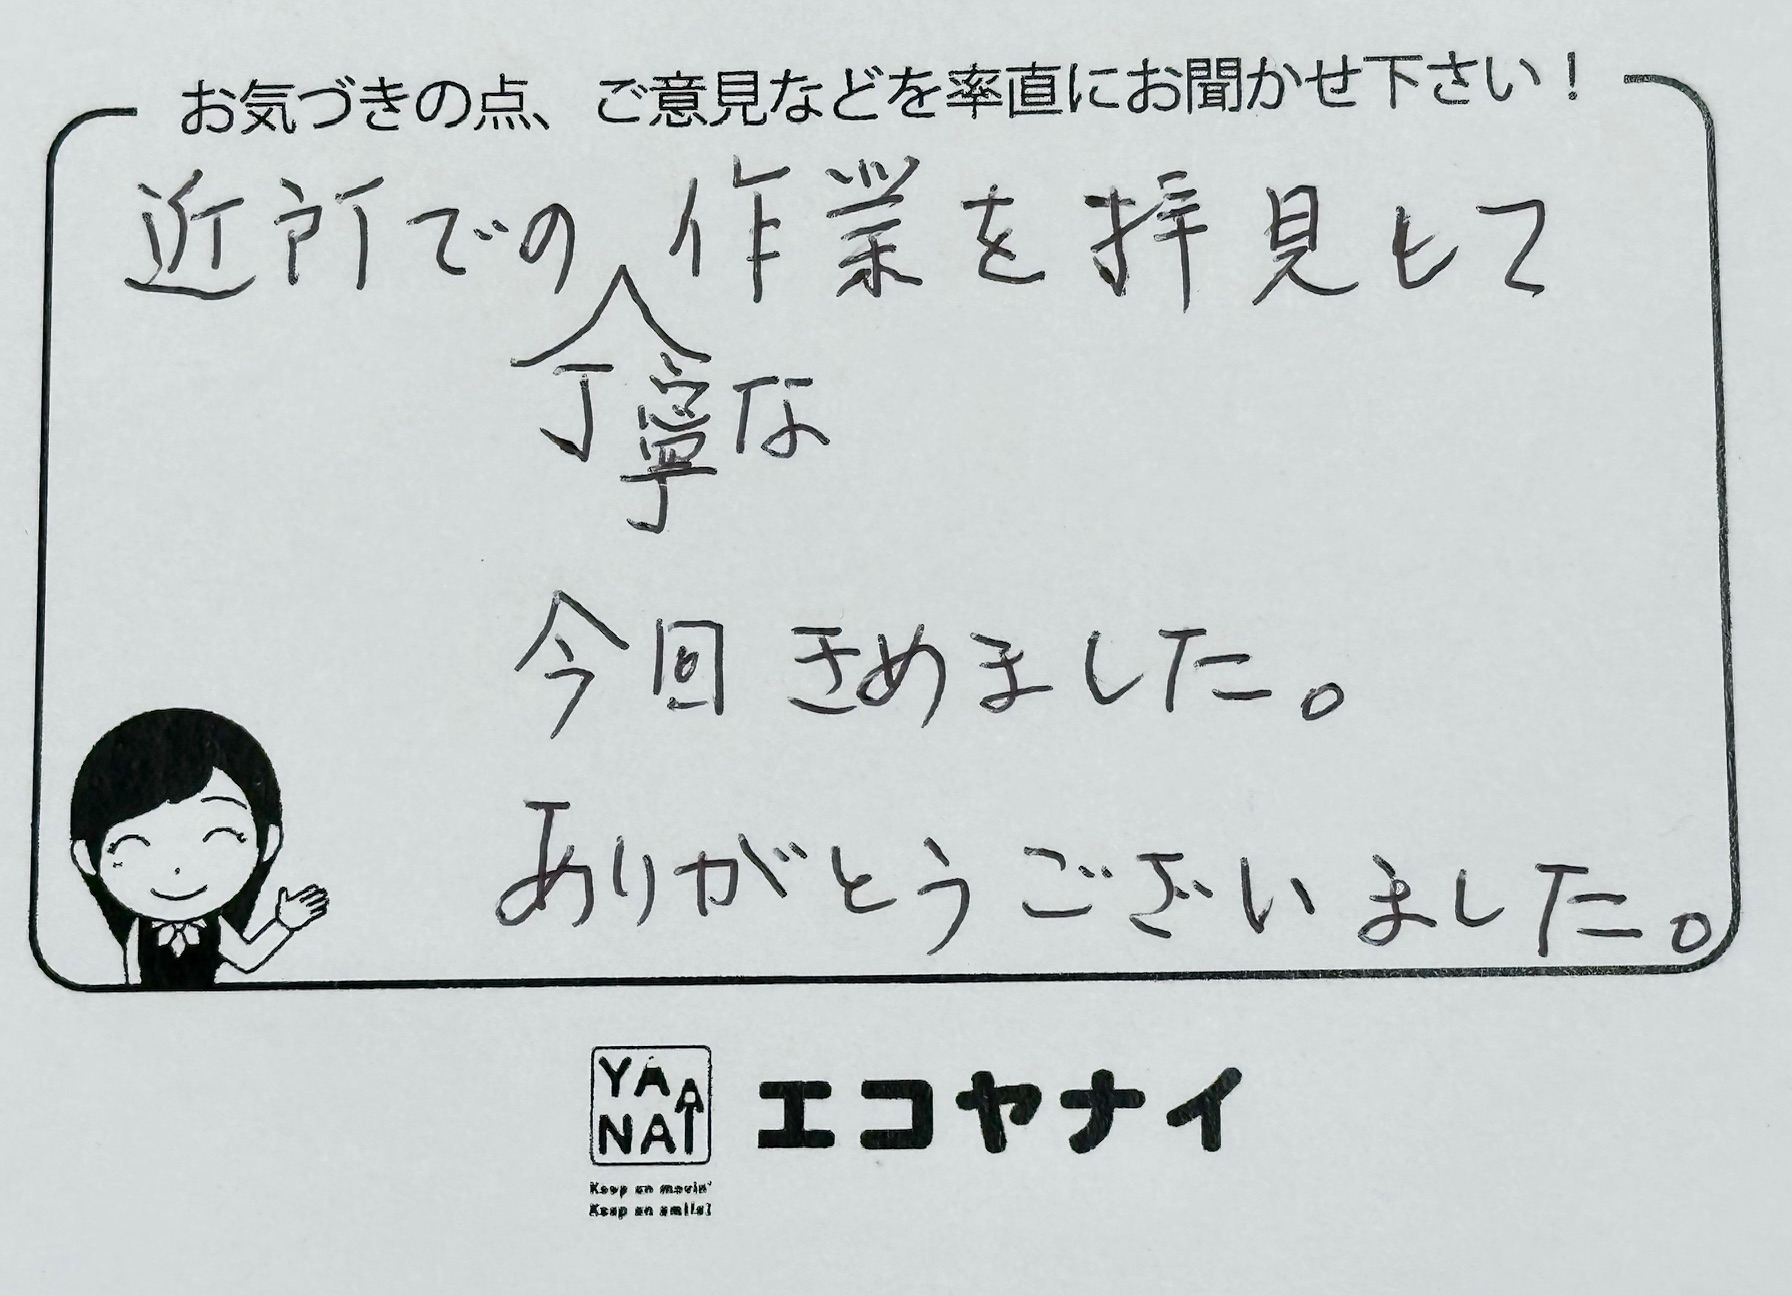 お気づきの点、ご意見などを率直にお聞かせ下さい！
近所での作業を拝見して
丁寧な
今回きめました。
ありがとうございました。
YAANAI
エコヤナイ
Keep on movin'
Keep on smile!